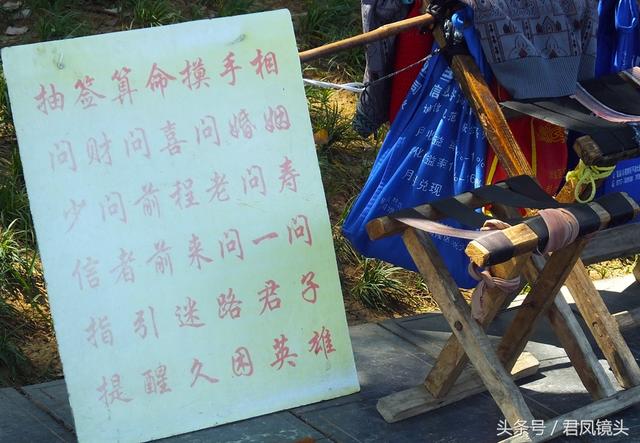 抽签算命摸手相
问财问喜问婚姻
少问前程老问寿
信者前来问一问
指引迷路君子
提醒久困英雄
月兑现
头条号 / 君风镜头